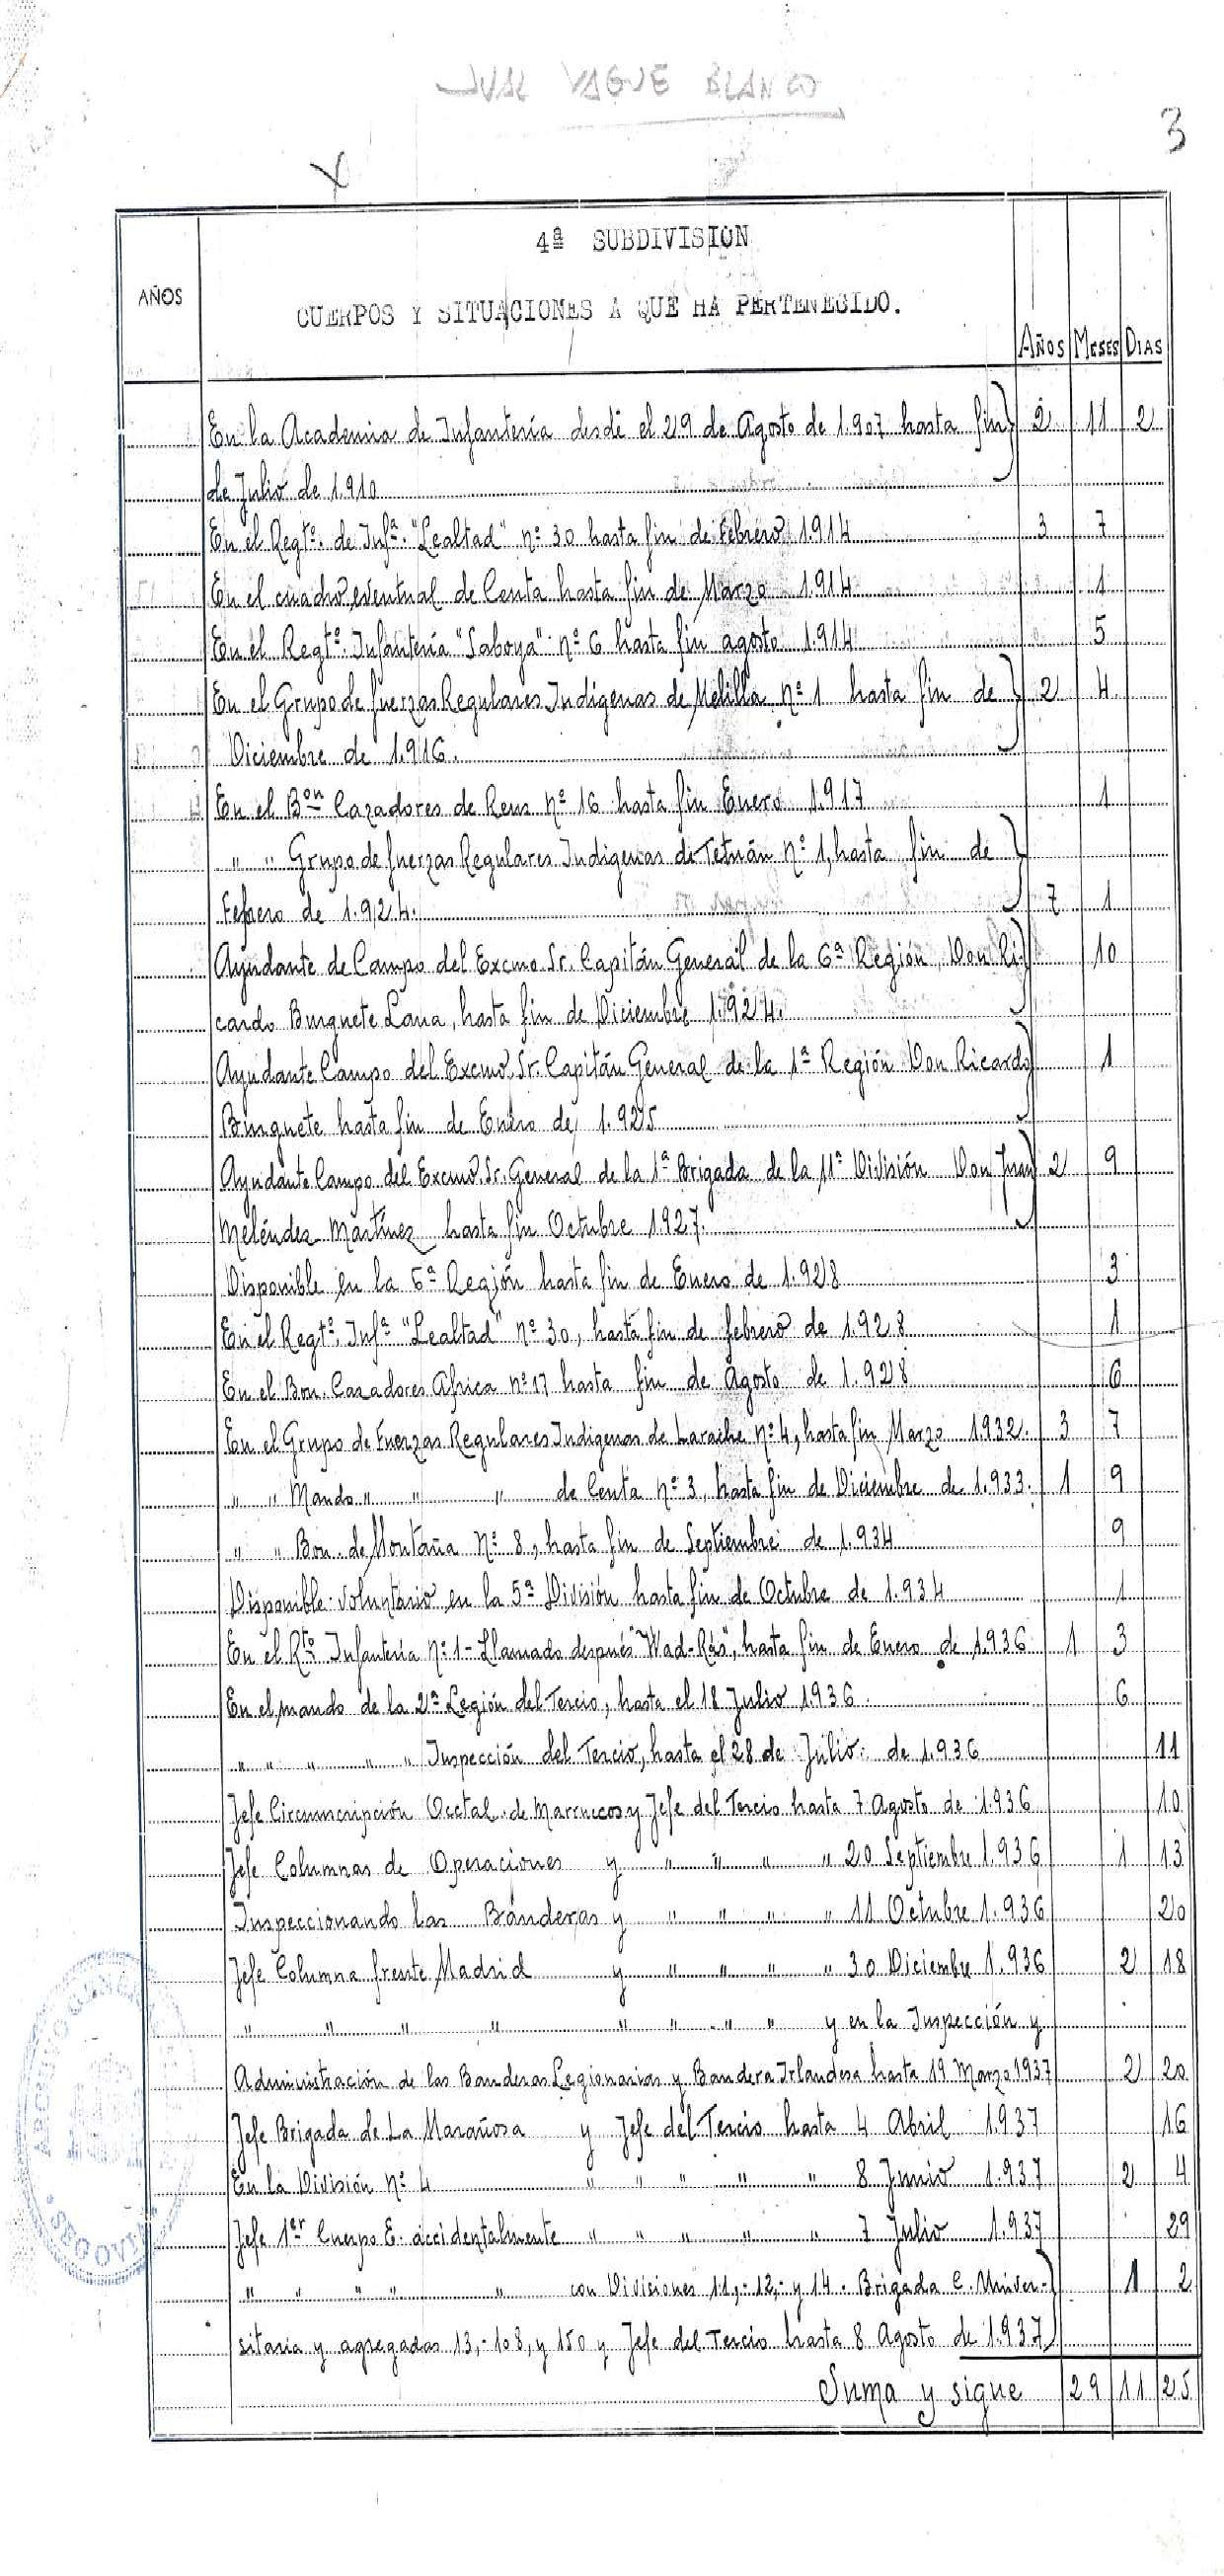 JUAN YAGUE BLANCO
3
X
4ª SUBDIVISION
AÑOS
CUERPOS Y SITUACIONES A QUE HA PERTENECIDO.
AÑOS MESES DIAS
En la Academia de Infantería desde el 29 de Agosto de 1.907 hasta fin 2 11 2
de Julio de 1.910
En el Regtº. de Infª. "Lealtad" nº 30 hasta fin de Febrero 1.914 3 7
En el cuadro eventual de Ceuta hasta fin de Marzo 1.914 1
En el Regtº. Infantería "Saboya" nº 6 hasta fin agosto 1.914 5
En el Grupo de fuerzas Regulares Indígenas de Melilla nº 1 hasta fin de 2 4
Diciembre de 1.916.
En el Bon Cazadores de Reus nº 16 hasta fin Enero 1.917 1
" " Grupo de fuerzas Regulares Indigenas de Tetuán nº 1, hasta fin de
Febrero de 1.924. 7 1
Ayudante de Campo del Excmo. Sr. Capitán General de la 6ª Región, Don Ri- 10
cardo Burguete Lana, hasta fin de Diciembre 1.924.
Ayudante Campo del Excmo. Sr. Capitán General de la 1ª Región Don Ricardo 1
Burguete hasta fin de Enero de 1.925
Ayudante Campo del Excmo. Sr. General de la 1ª Brigada de la 11ª División Don Juan 2 9
Meléndez Martínez hasta fin Octubre 1.927.
Disponible en la 6ª Región hasta fin de Enero de 1.928 3
En el Regtº. Infª "Lealtad" nº 30, hasta fin de febrero de 1.928 1
En el Bon. Cazadores Africa nº 17 hasta fin de Agosto de 1.928 6
En el Grupo de Fuerzas Regulares Indigenas de Larache nº 4, hasta fin Marzo 1.932. 3 7
" " Mando " " " de Ceuta nº 3, hasta fin de Diciembre de 1.933. 1 9
" " Bon. de Montaña Nº 8, hasta fin de Septiembre de 1.934 9
Disponible voluntario en la 5ª División hasta fin de Octubre de 1.934 1
En el Rtº Infantería Nº 1 - Llamado después "Wad-Rás", hasta fin de Enero de 1.936 1 3
En el mando de la 2ª Legión del Tercio, hasta el 18 Julio 1.936. 6
" " " " " Inspección del Tercio, hasta el 28 de Julio de 1.936 11
Jefe Circunscripción Occtal. de Marruecos y Jefe del Tercio hasta 7 Agosto de 1.936 10
Jefe Columnas de Operaciones y " " " " 20 Septiembre 1.936 1 13
Inspeccionando las Banderas y " " " " 11 Octubre 1.936 20
Jefe Columna frente Madrid y " " " " 30 Diciembre 1.936 2 18
" " " " " " " " y en la Inspección y
Administración de las Banderas Legionarias y Bandera Irlandesa hasta 19 Marzo 1937 2 20
Jefe Brigada de La Marañosa y Jefe del Tercio hasta 4 Abril 1.937 16
En la División Nº 4 " " " " " 8 Junio 1.937 2 4
Jefe 1er Cuerpo E. accidentalmente " " " " " 7 Julio 1.937 29
" " " " " con Divisiones 11,- 12,- y 14. Brigada C. Univer- 1 2
sitaria y agregadas 13,- 108, y 150 y Jefe del Tercio hasta 8 Agosto de 1.937
Suma y sigue 29 11 25
ARCHIVO GENERAL
SEGOVIA